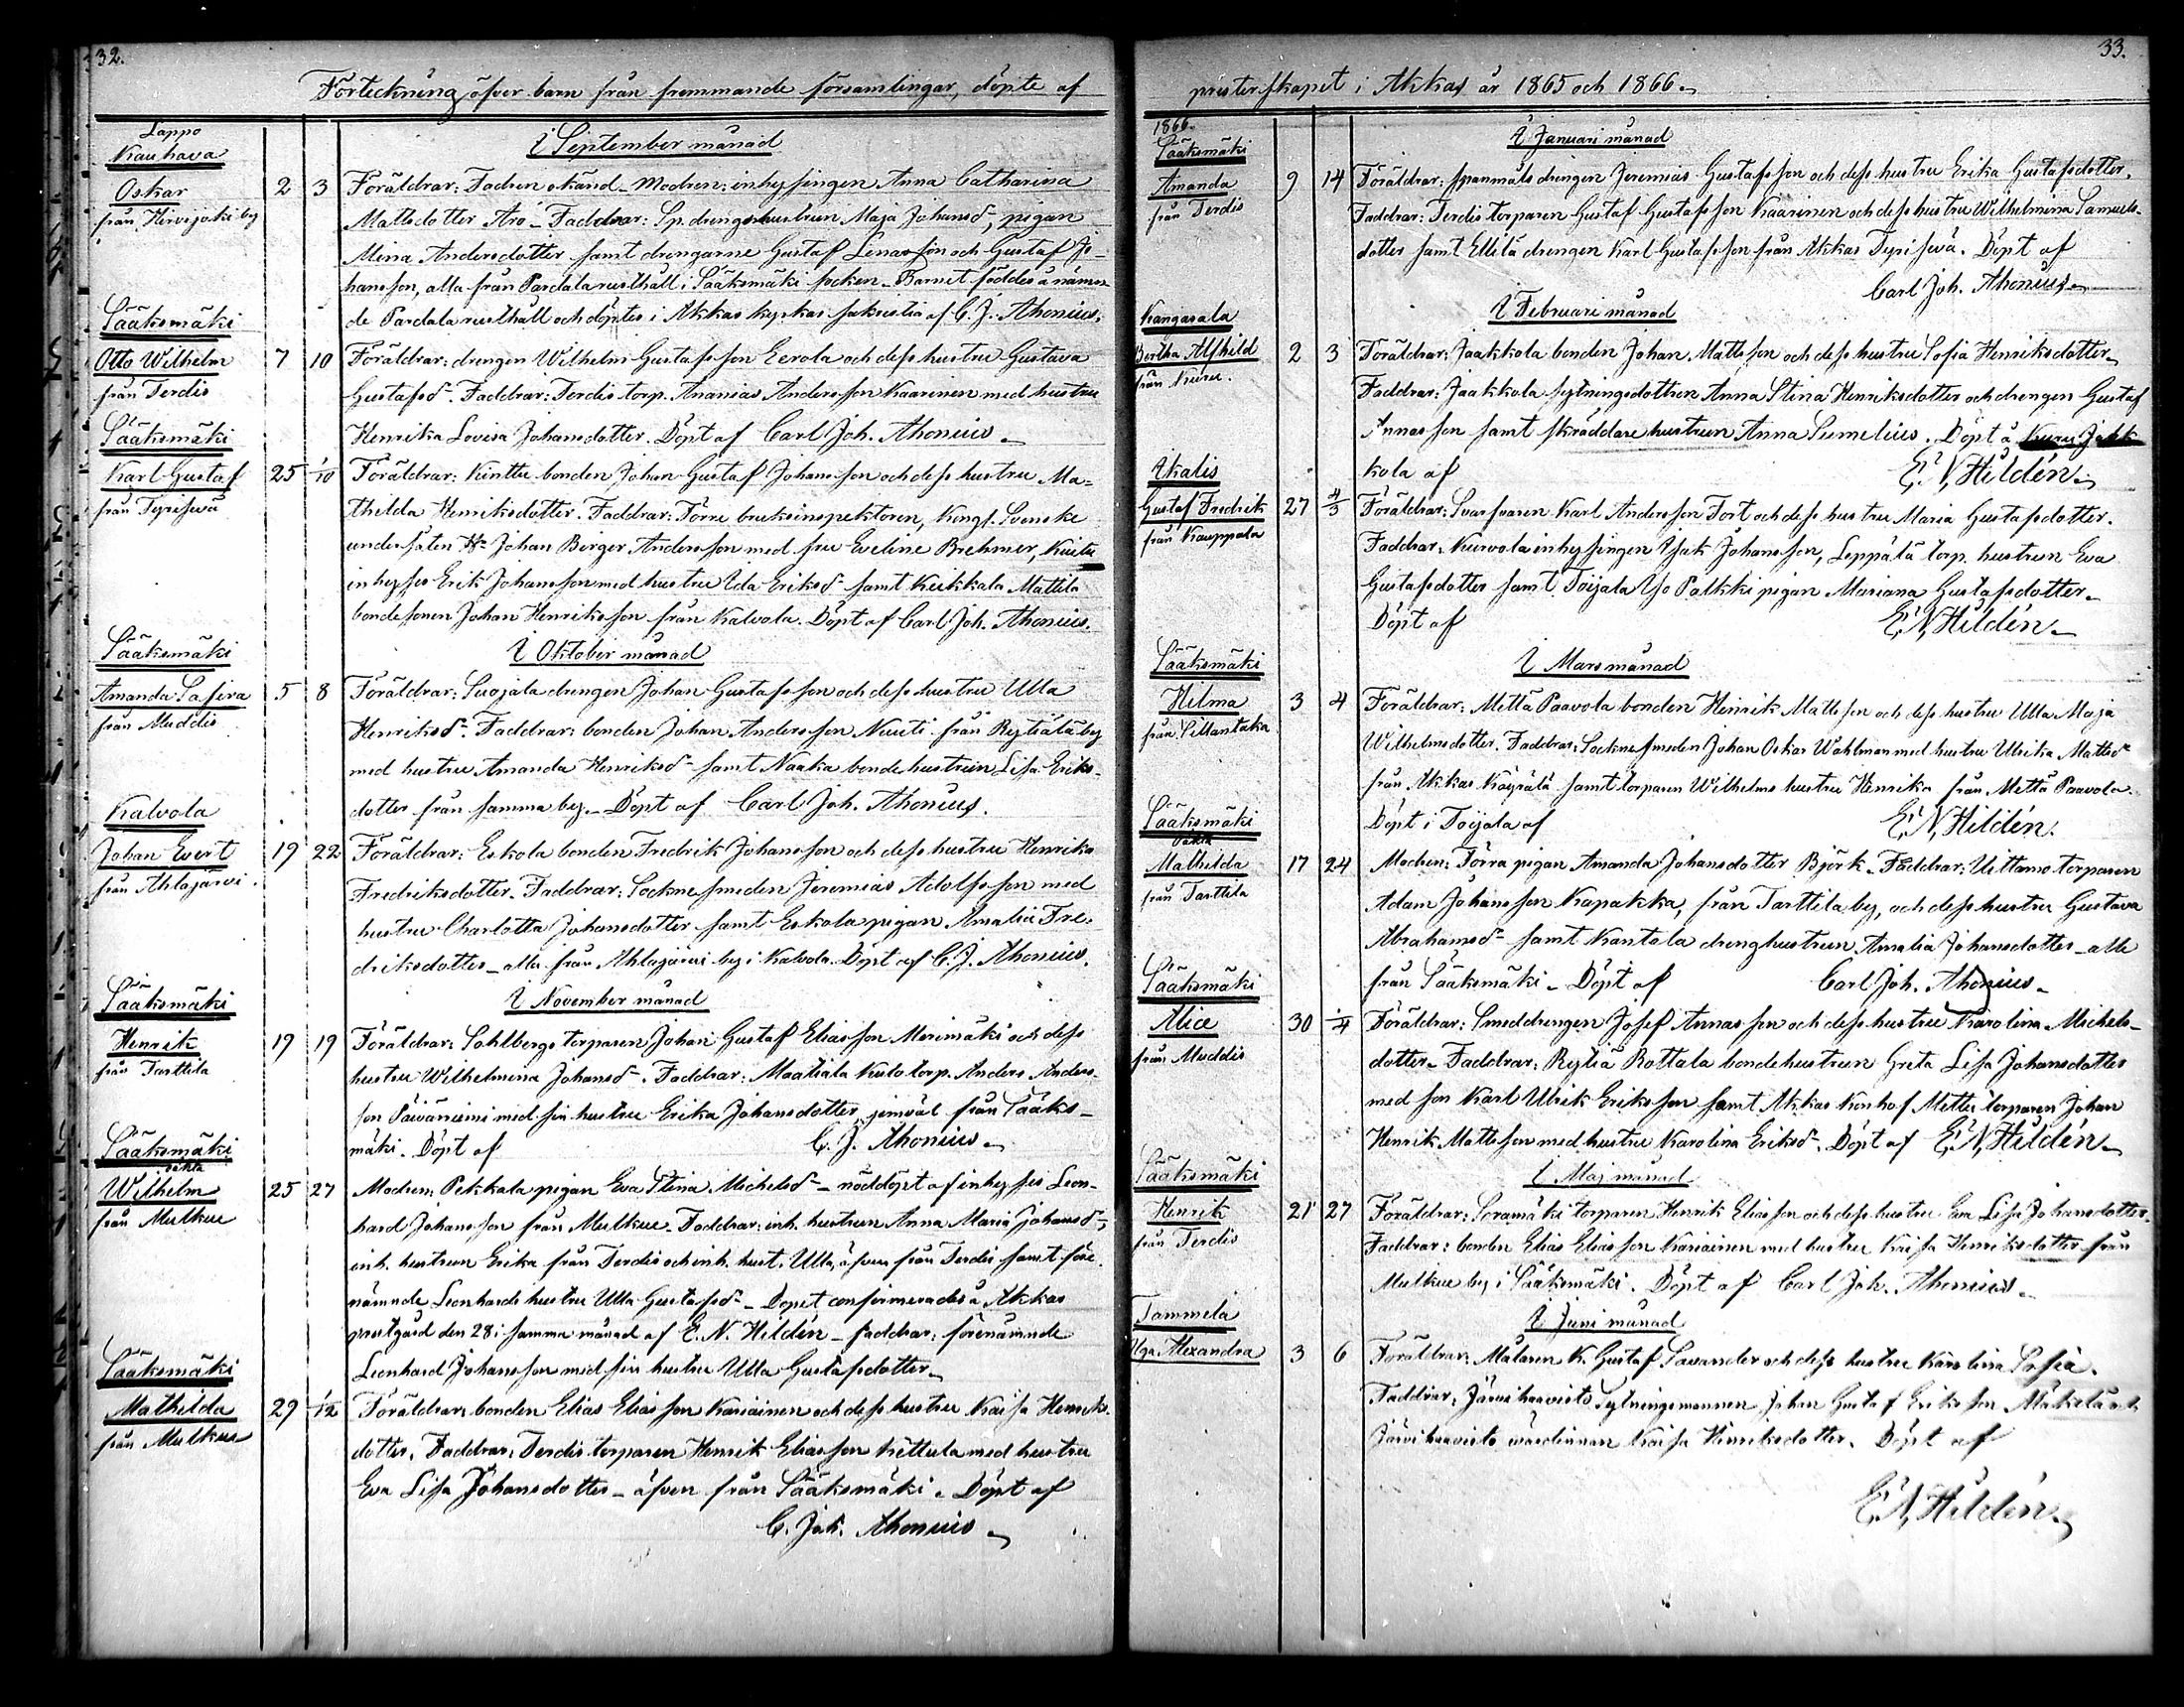 32.
Förteckning öfver barn från fremmande församlingar, döpte af
Lappo
Kauhava
I September månad
Oskar 2 3 Föräldrar: Fadren okänd – Modren: inhysingen Anna Catharina
från Hirvijoki by Mattsdotter Aro – Faddrar: Sp. drengshustrun Maja Johansdr, pigan
Mina Andersdotter samt drengarne Gustaf Linasson och Gustaf Jo-
hansson, alla från Pardala rusthåll i Sääksmäki socken – Barnet föddes å nämn-
Sääksmäki de Pardala rusthåll och döptes i Akkas kyrkas sakristia af C. J. Ahonius.
Otto Wilhelm 7 10 Föräldrar: drengen Wilhelm Gustafsson Eerola och dess hustru Gustava
från Terdis Gustafsdr. Faddrar: Terdis torp. Ananias Andersson Kaarinen med hustru
Sääksmäki Henrika Lovisa Johansdotter. Döpt af Carl Joh. Ahonius –
Karl Gustaf 25 1/10 Föräldrar: Kinttu bonden Johan Gustaf Johansson och dess hustru Ma-
från thilda Henriksdotter. Faddrar: Förre bruksinspektoren, Kongl. Svenske
undersåten Hr Johan Birger Andersson med fru Eveline Brehmer,
inhyses Erik Johansson med hustru Ida Eriksdr samt Keikkala Mattila
bondesonen Johan Henriksson från Kalvola. Döpt af Carl Joh. Ahonius.
Sääksmäki
I Oktober månad
Amanda Safira 5 8 Föräldrar: Suojala drengen Johan Gustafsson och dess hustru Ulla
från Muddis Henriksdr. Faddrar: bonden Johan Andersson Nuuti från Rytiälä by
med hustru Amanda Henriksdr samt Naaka bondehustrun Lisa Eriks-
Kalvola dotter från samma by. – Döpt af Carl Joh. Ahonius.
Johan Evert 19 22 Föräldrar: Eskola bonden Fredrik Johansson och dess hustru Henrika
från Ahlajärvi. Fredriksdotter. Faddrar: Sockne smeden Jeremias Adolfsson med
hustru Charlotta Johansdotter samt Eskola pigan Amalia Fre-
driksdotter – alla från Ahlajärvi by i Kalvola. Döpt af C. J. Ahonius.
Sääksmäki
I November månad
Henrik 19 19 Föräldrar: Sahlbergs torparen Johan Gustaf Eliasson Merimäki och dess
från Tarttila hustru Wilhelmina Johansdr. Faddrar: Maatiala Kulo torp. Anders Anders-
son Päiväniemi med sin hustru Erika Johansdotter, jemväl från Sääks-
Sääksmäki mäki. Döpt af C. J. Ahonius –
oäkta
Wilhelm 25 27 Modren: Pekkala pigan Eva Stina Michelsdr – nöddöpt af inhyses Leon-
från Mulkue hard Johansson från Mulkue. Faddrar: inh. hustrun Anna Maria Johansdr,
inh. hustrun Erika från Terdis och inh. hust. Ulla, äfven från Terdis samt före-
nämnde Leonhards hustru Ulla Gustafsdr – Dopet confirmerades å Akkas
prestgård den 28 i samma månad af E. N. Hildén – faddrar: förenämnde
Sääksmäki Leonhard Johansson med sin hustru Ulla Gustafsdotter –
Mathilda 29 1/12 Föräldrar: bonden Elias Eliasson Kariainen och dess hustru Kaisa Henriks-
från Mulkue dotter. Faddrar: Terdis torparen Henrik Eliasson Kettula med hustru
Eva Lisa Johansdotter – äfven från Sääksmäki. Döpt af
C. Joh. Ahonius –
33.
presterskapet i Akkas år 1865 och 1866.
1866.
Sääksmäki
I Januari månad
Amanda 9 14 Föräldrar: spanmåls drengen Jeremias Gustafsson och dess hustru Erika Gustafsdotter.
från Terdis Faddrar: Terdis torparen Gustaf Gustafsson Kaarinen och dess hustru Wilhelmina Samuels-
dotter samt Ellilä drengen Karl Gustafsson från Akkas . Döpt af
Carl Joh. Ahonius –
Kangasala
I Februari månad
Bertha Alfhild 2 3 Föräldrar: Jaakkola bonden Johan Mattsson och dess hustru Sofia Henriksdotter
från Kuru. Faddrar: Jaakkola sytningsdottren Anna Stina Henriksdotter och drengen Gustaf
Annasson samt skräddare hustrun Anna Sumelius. Döpt å Jakk
Ikalis kola af E. N. Hildén –
Gustaf Fredrik 27 4/3 Föräldrar: Svarfvaren Karl Andersson Fort och dess hustru Maria Gustafsdotter.
från Kauppala Faddrar: Kurvola inhysingen Isak Johansson, Leppälä torp. hustrun Eva
Gustafsdotter samt Toijala Iso Palkki pigan Mariana Gustafsdotter –
Döpt af E. N. Hildén –
Sääksmäki
I Mars månad
Hilma 3 4 Föräldrar: Mettä Paavola bonden Henrik Mattsson och dess hustru Ulla Maja
från Wilhelmsdotter. Faddrar: Sockne smeden Johan Oskar Wahlman med hustru Ulrika Mattsdr
från Akkas Käyrälä samt torparen Wilhelms hustru Henrika från Mettä Paavola.
Sääksmäki Döpt i Toijala af E. N. Hildén.
oäkta
Mathilda 17 24 Modren: Förra pigan Amanda Johansdotter Björk – Faddrar: Uittamo torparen
från Tarttila Adam Johansson Kapakka, från Tarttila by, och dess hustru Gustava
Abrahamsdr samt Kantola drenghustrun Amalia Johansdotter – alla
Sääksmäki från Sääksmäki – Döpt af Carl Joh. Ahonius –
Alice 30 1/4 Föräldrar: Smeddrengen Josef Annasson och dess hustru Karolina Michels-
från Muddis dotter – Faddrar: Rytiä Rottala bondehustrun Greta Lisa Johansdotter
med son Karl Ulrik Eriksson samt Akkas Konhof Metter torparen Johan
Henrik Mattsson med hustru Karolina Eriksdr. Döpt af E. N. Hildén –
Sääksmäki
I Maj månad
Henrik 21 27 Föräldrar: Soramäki torparen Henrik Eliasson och dess hustru Eva Lisa Johansdotter.
från Terdis Faddrar: bonden Elias Eliasson Kariainen med hustru Kaisa Henriksdotter från
Mulkue by i Sääksmäki. Döpt af Carl Joh. Ahonius –
Tammela
I Juni månad
Olga Alexandra 3 6 Föräldrar: Målaren K. Gustaf Savander och dess hustru Karolina Sofia.
Faddrar: Järvihaavisto Sytningsmannen Johan Gustaf Eriksson Mäkelä och
Järvihaavisto värdinnan Kaisa Henriksdotter. Döpt af
E. N. Hildén –